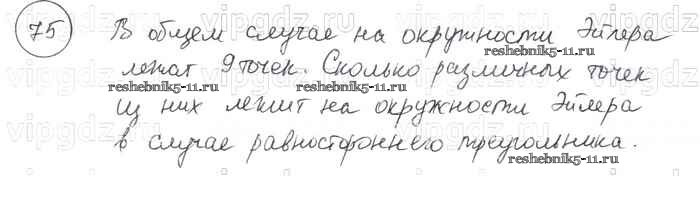 75 В общем случае на окружности Эйлера
лежат 9 точек. Сколько различных точек
из них лежит на окружности Эйлера
в случае равностороннего треугольника.
reshebnik5-11.ru
reshebnik5-11.ru
reshebnik5-11.ru
vipgdz.ru